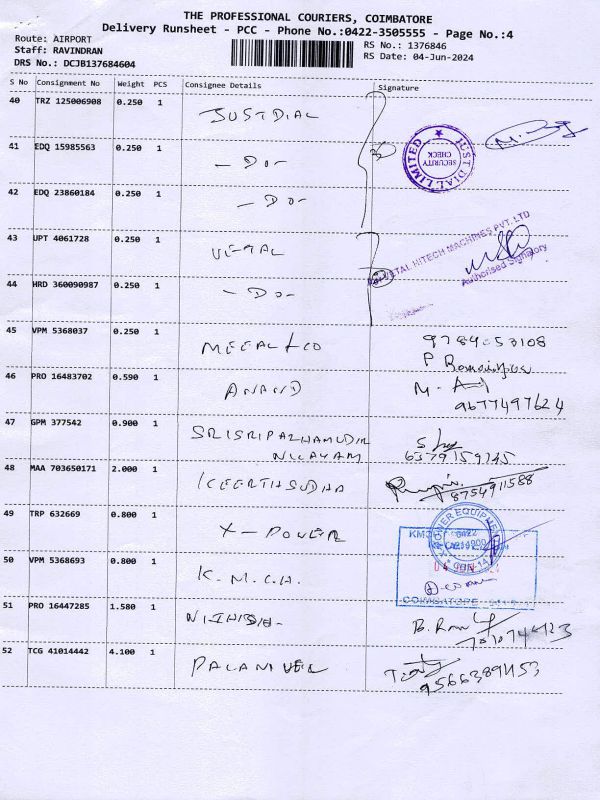 THE PROFESSIONAL COURIERS, COIMBATORE
Delivery Runsheet - PCC - Phone No.:0422-3505555 - Page No.:4
Route: AIRPORT
Staff: RAVINDRAN
DRS No.: DCJB137684604
RS No.: 1376846
RS Date: 04-Jun-2024
S No Consignment No Weight PCS Consignee Details Signature
40 TRZ 125006908 0.250 1 JUSTDIAL
JUST DIAL LIMITED
SECURITY CHECK
41 EDQ 15985563 0.250 1 - DO -
42 EDQ 23860184 0.250 1 - DO -
43 UPT 4061728 0.250 1
HITECH MACHINES PVT. LTD
Authorised Signatory
44 HRD 360090987 0.250 1 - DO -
45 VPM 5368037 0.250 1
P
46 PRO 16483702 0.590 1 ANAND M.
9677497624
47 GPM 377542 0.900 1 SRISRIPAZHAMUDIR
NILAYAM
6379159145
48 MAA 703650171 2.000 1 KEERTHSUDHA
8754911588
49 TRP 632669 0.800 1 X-POWER
POWER EQUIPMENT
50 VPM 5368693 0.800 1 K.M.C.H.
COIMBATORE
51 PRO 16447285 1.580 1 B.
52 TCG 41014442 4.100 1 PALANIVEL